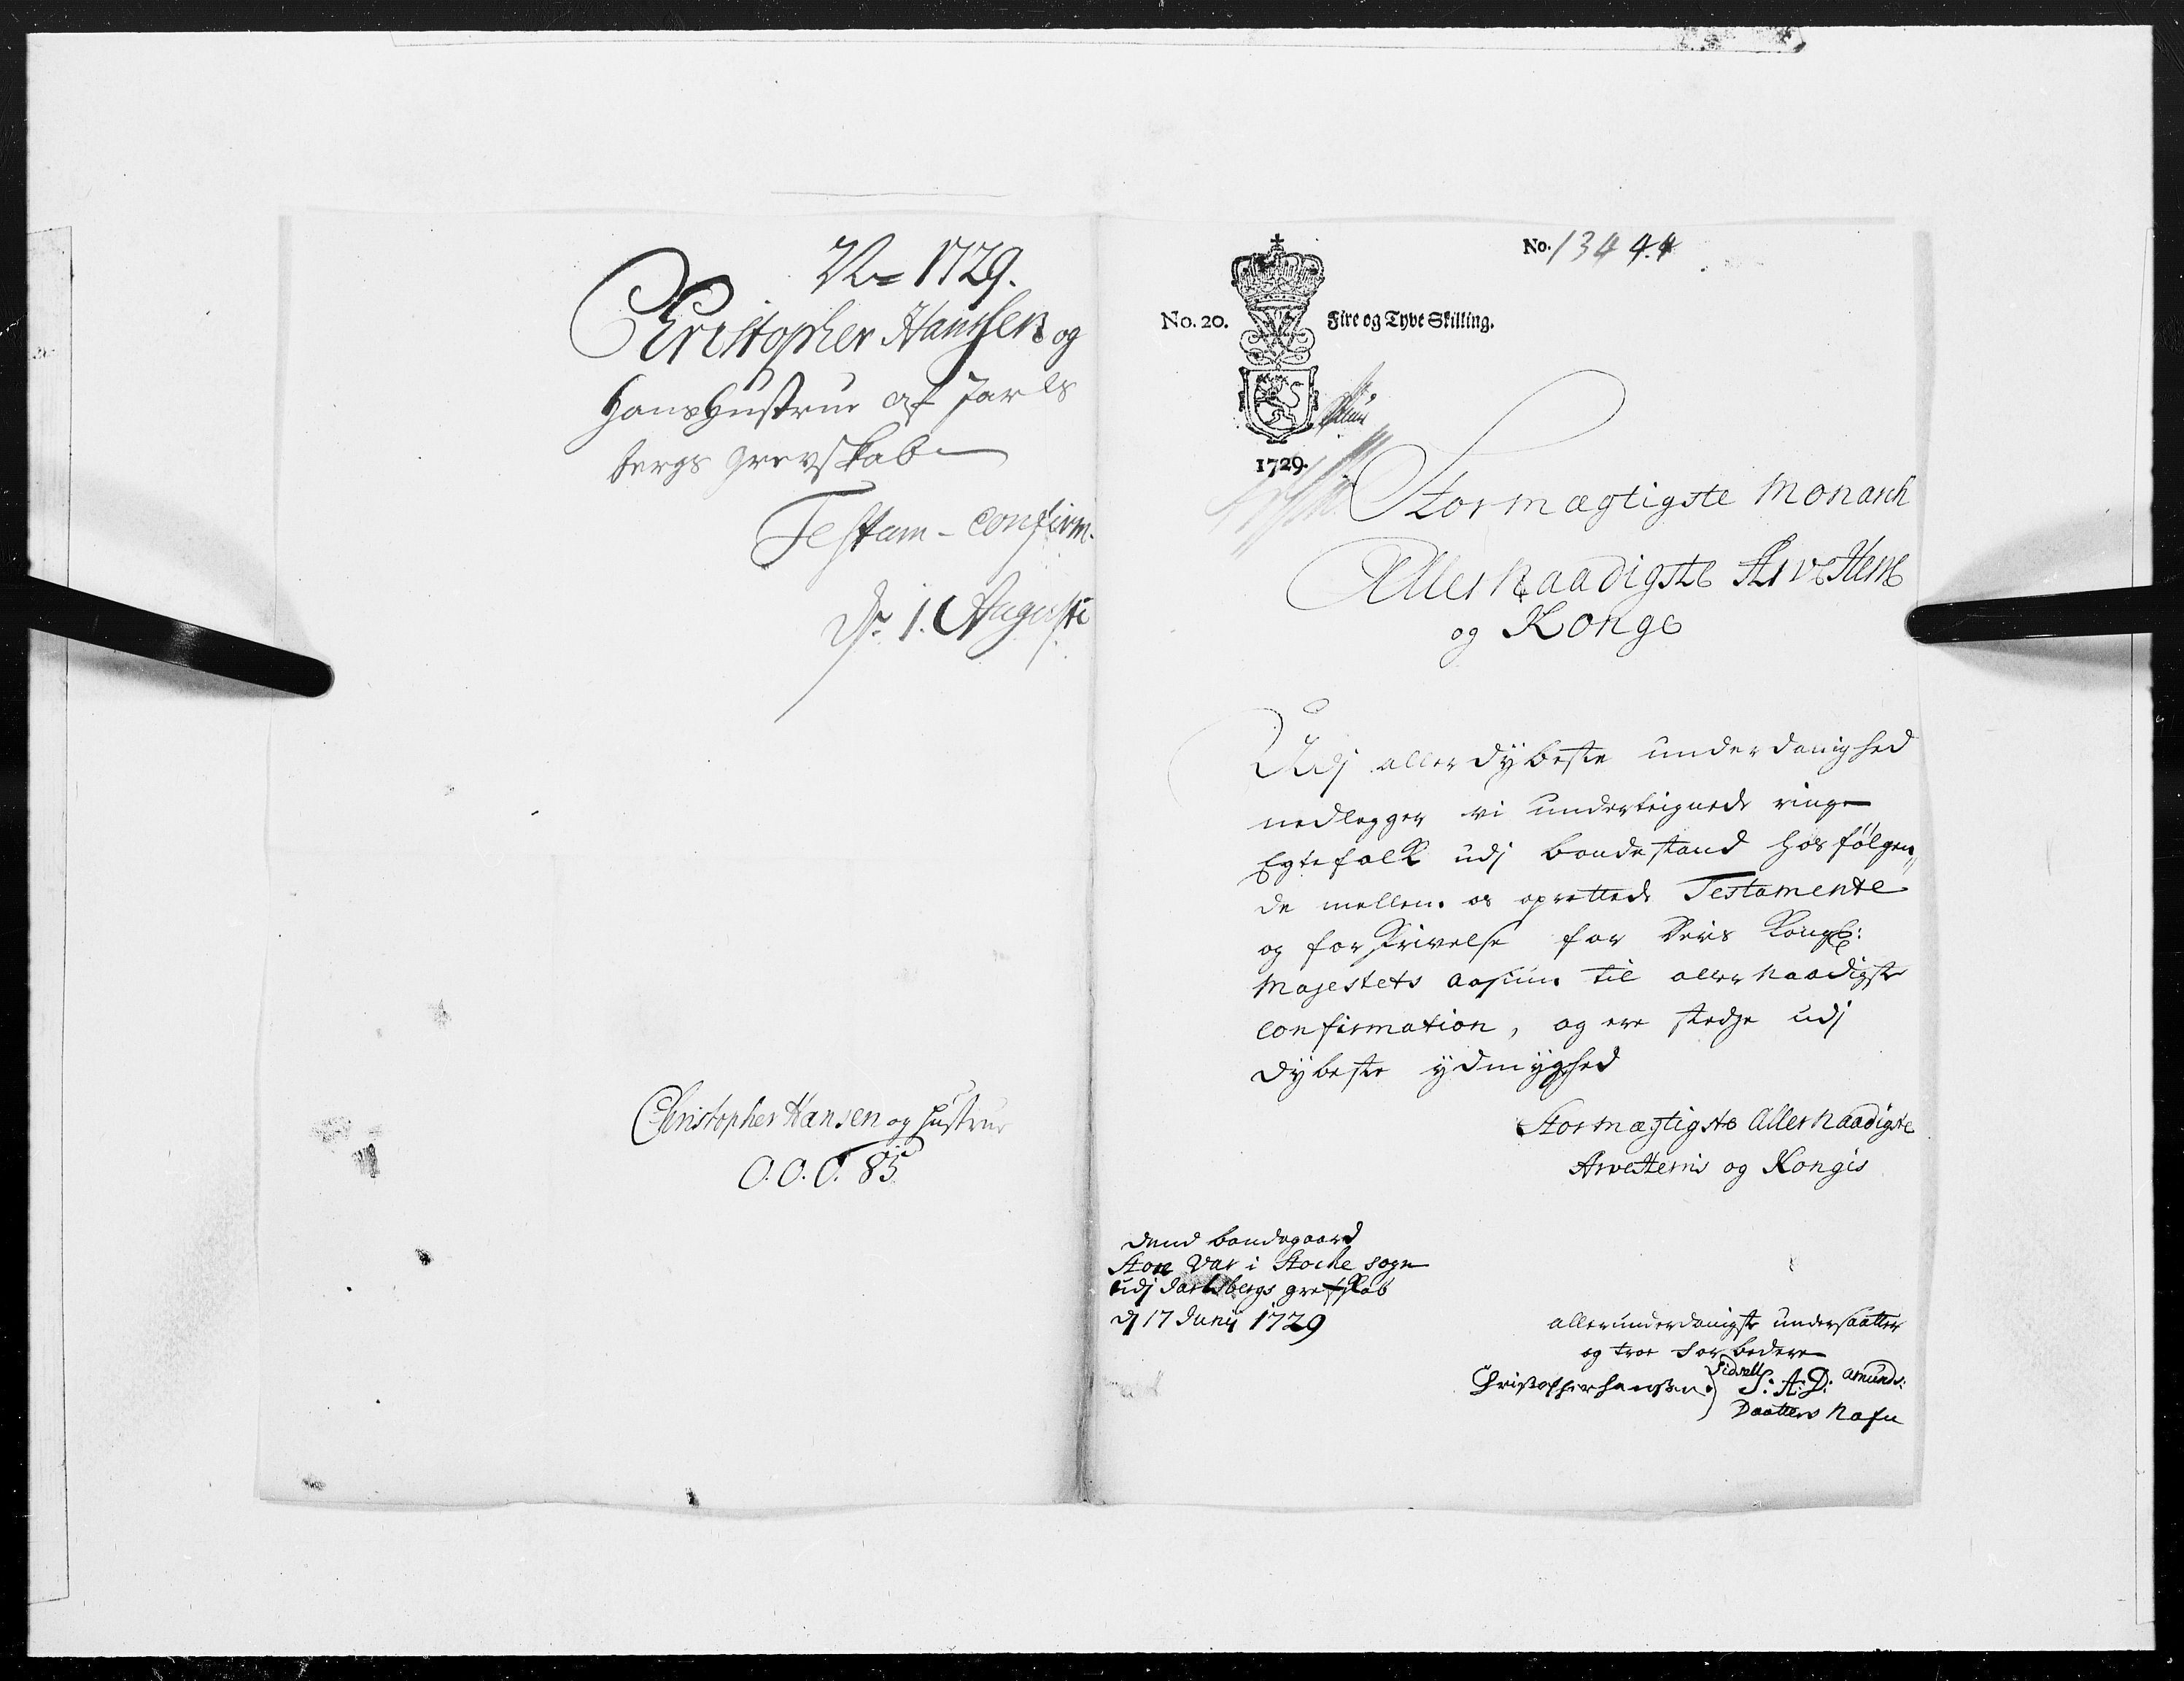 1729.
Christopher Hanssen og
Hans Hustrue af Jarls
bergs Grevskab
Testam-confirm.
Dr. 1. Augusti
Christopher Hansen og Hustrue
O.O.O. 85
No. 13444
No. 20.
Fire og Tyve Skilling.
1729.
Stormægtigste Monarch
Allernaadigste ArveHerre
og Konge
Udj allerdÿbeste underdanighed
nedlegger vi underteignede ringe
Egtefolk udj bondestand hosfølgen„
de mellem os oprettede Testamente
og forskrivelse for Deris Kongl:
Majestets til allernaadigste
confirmation, og ere stedze udj
dÿbeste ÿdmÿghed
Stormægtigste Allernaadigste
ArveHerris og Kongis
dend bondegaard
Store Var i Stocke sogn
udj Jarlsbergs grefskab
dj 17 Junij 1729
allerunderdanigste undersaatter
og troe forbedere
Christopher Hansen. Sidsell S. A. D. amunds:
Daatters Nafn